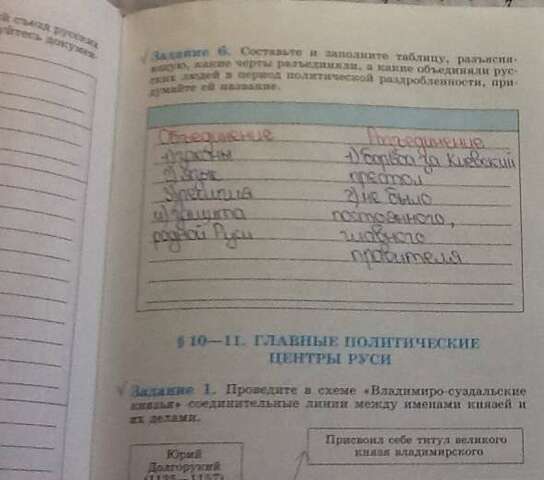 й съезд русских
уйтесь докумен-
Задание 6. Составьте и заполните таблицу, разъясня-
ющую, какие черты разъединяли, а какие объединяли рус-
ских людей в период политической раздробленности, при-
думайте ей название.
Объединение Разъединение
1) законы 1) борьба за Киевский
2) язык престол
3) религия 2) не было
4) защита постоянного,
родной Руси главного
правителя
§ 10—11. ГЛАВНЫЕ ПОЛИТИЧЕСКИЕ
ЦЕНТРЫ РУСИ
Задание 1. Проведите в схеме «Владимиро-суздальские
князья» соединительные линии между именами князей и
их делами.
Юрий
Долгорукий
(1125—1157)
Присвоил себе титул великого
князя владимирского